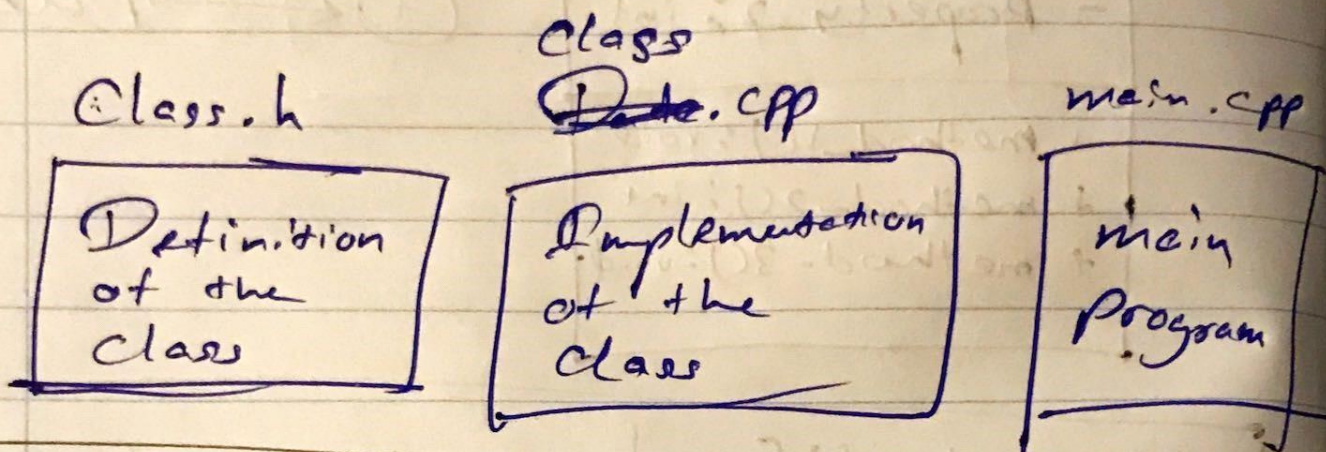 Class.h
Definition
of the
Class
Class
Date.cpp
Implementation
of the
class
main.cpp
main
program